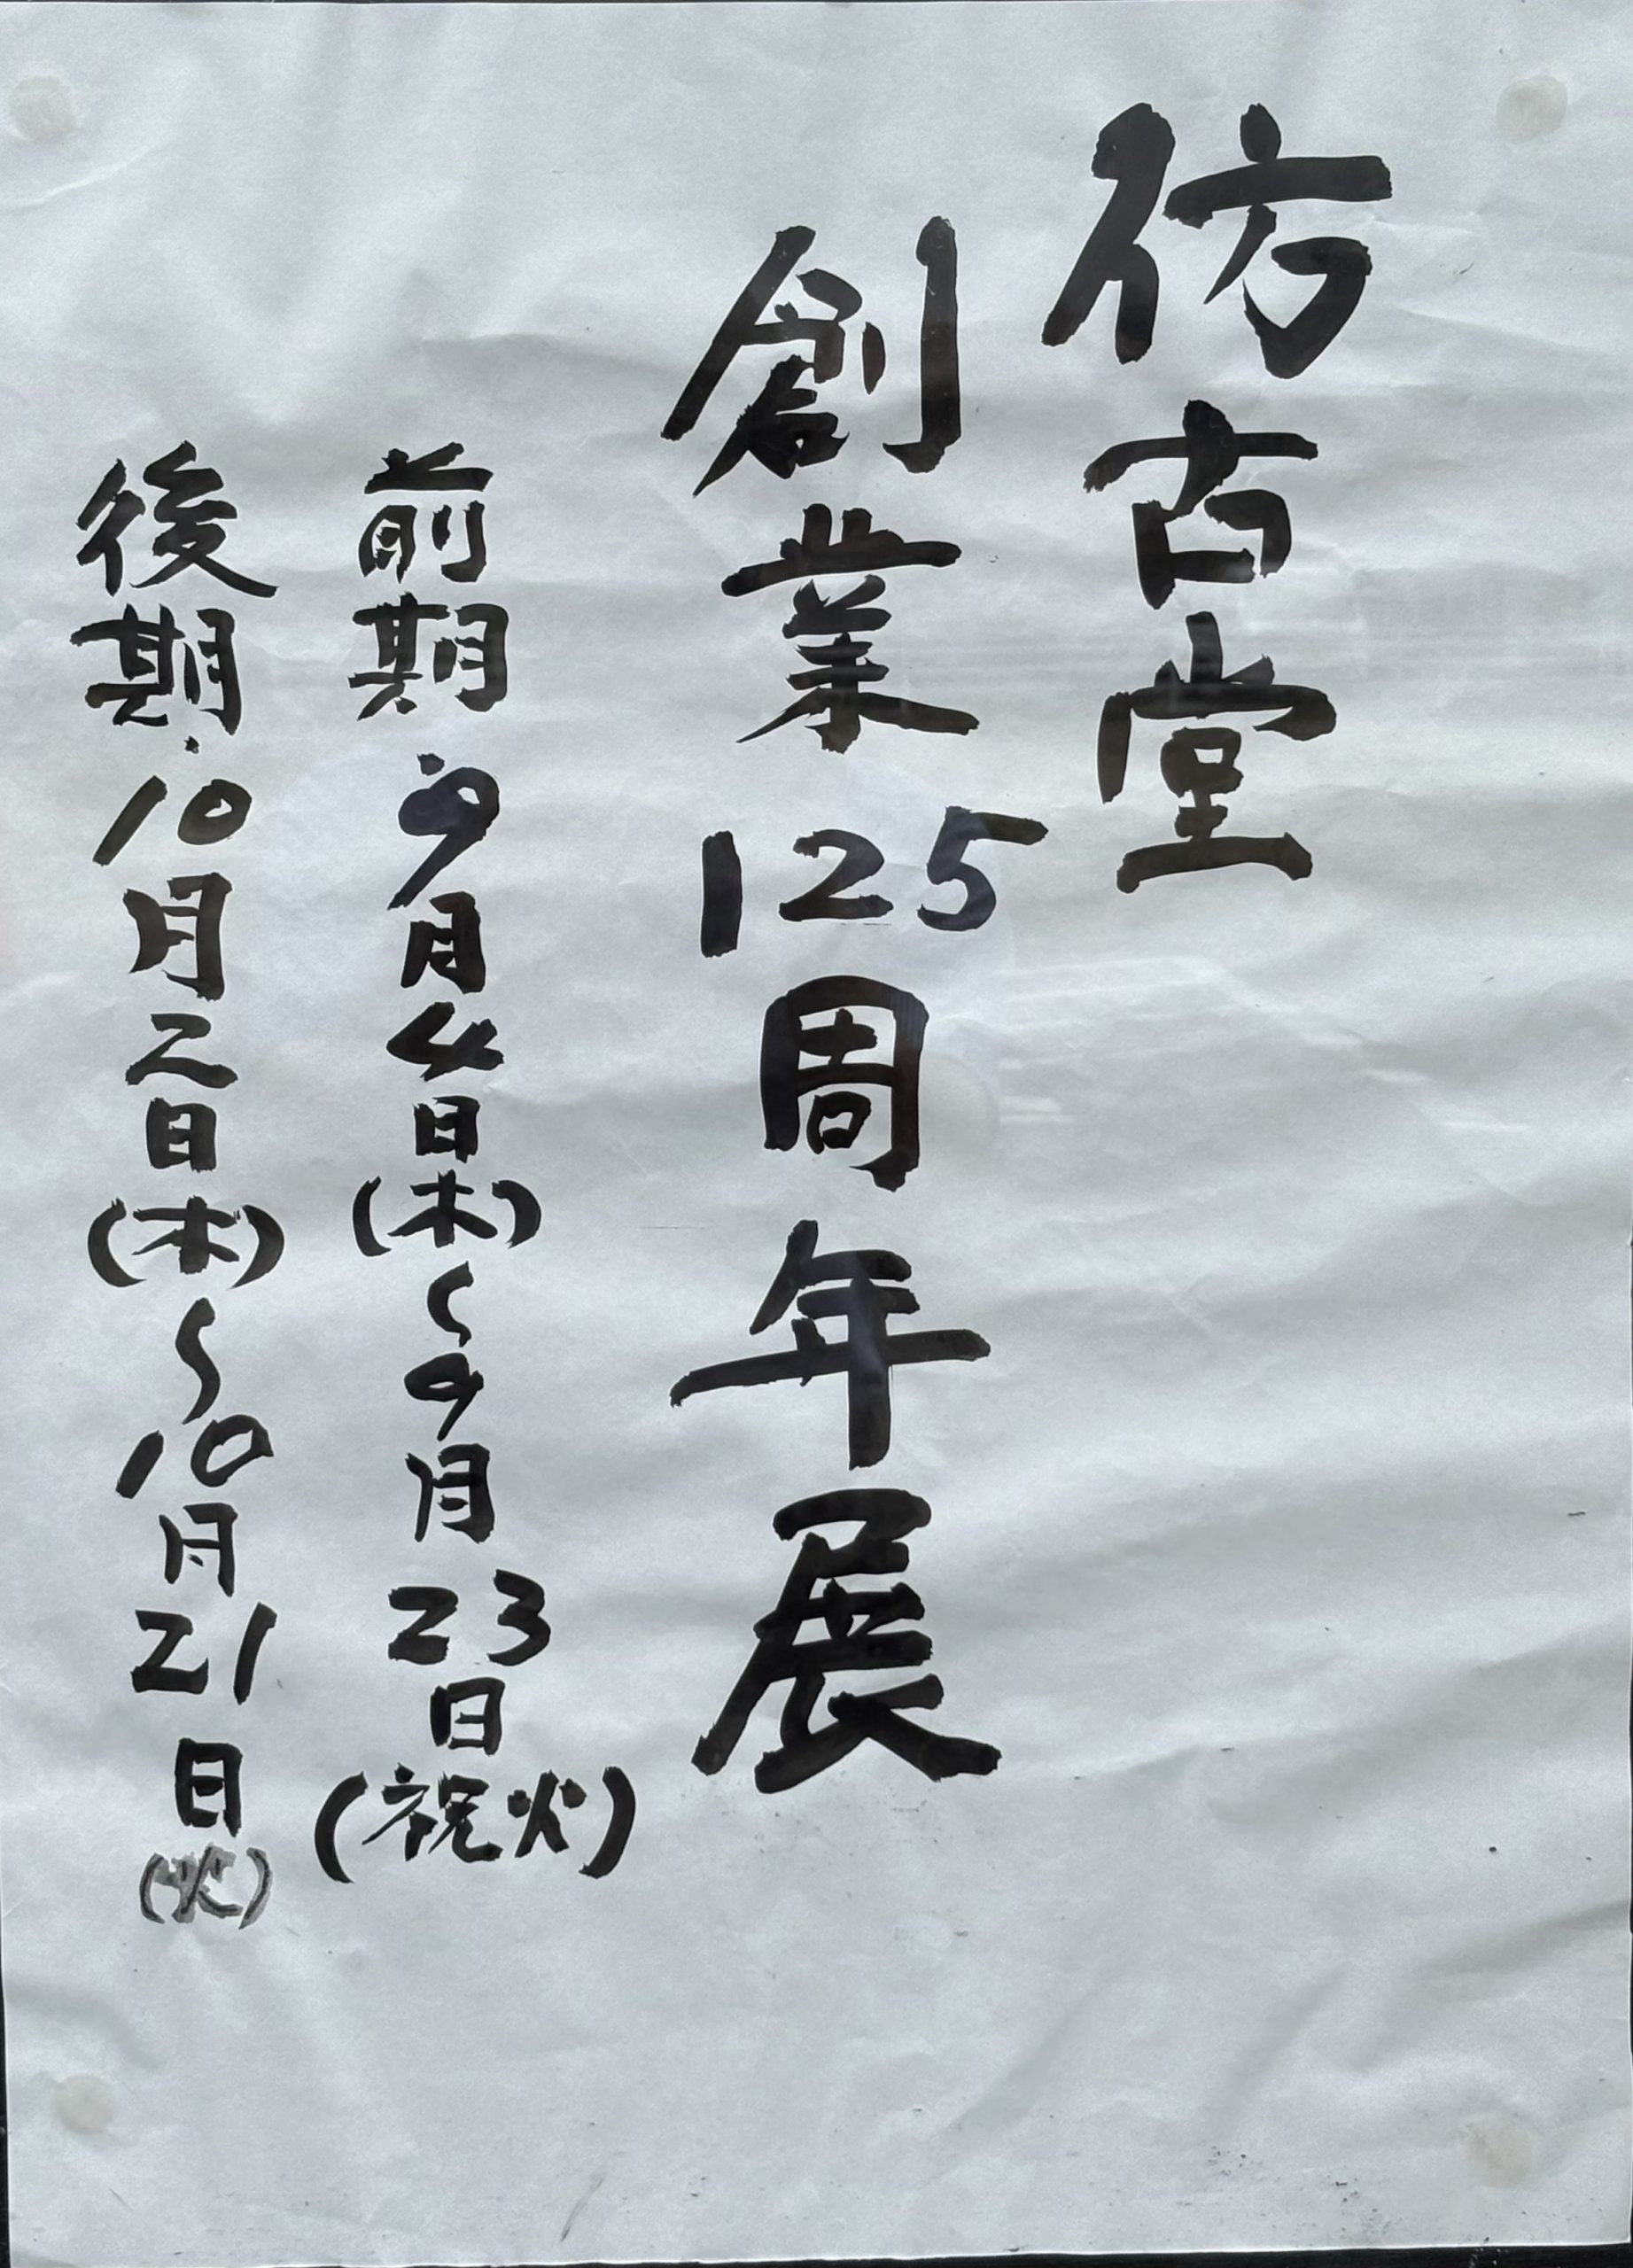 仿古堂
創業125周年展
前期・9月4日(木)〜9月23日(祝火)
後期・10月2日(木)〜10月21日(火)